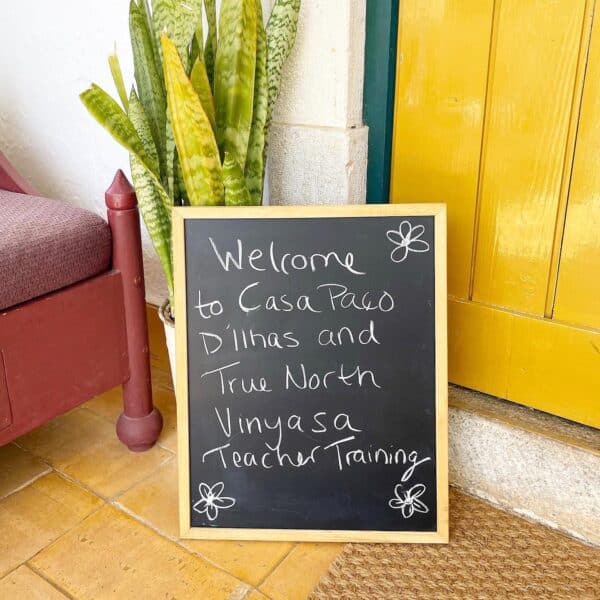 Welcome
to Casa Paço
D'Ilhas and
True North
Vinyasa
Teacher Training